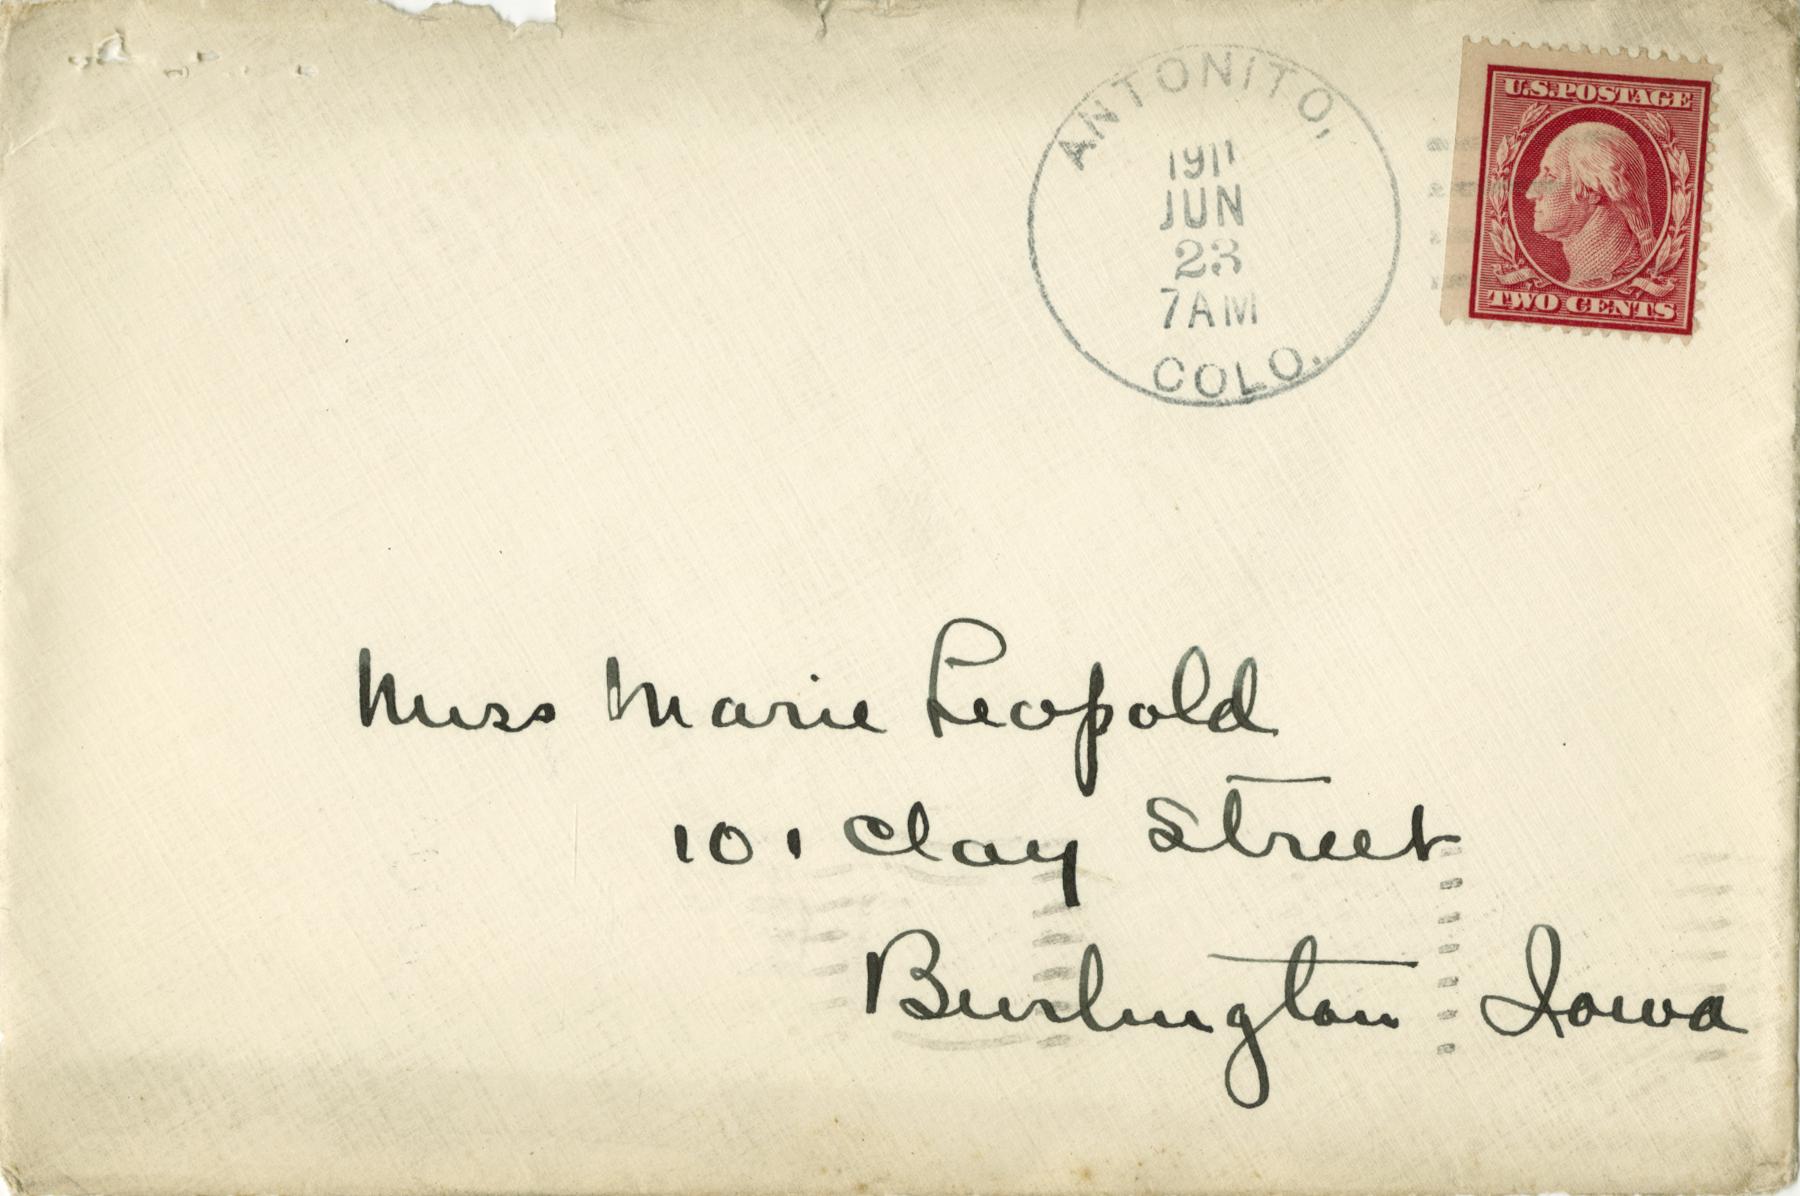 ANTONITO,
1911
JUN
23
7AM
COLO.
U.S. POSTAGE
TWO CENTS
Miss Marie Leopold
101 Clay Street
Burlington Iowa